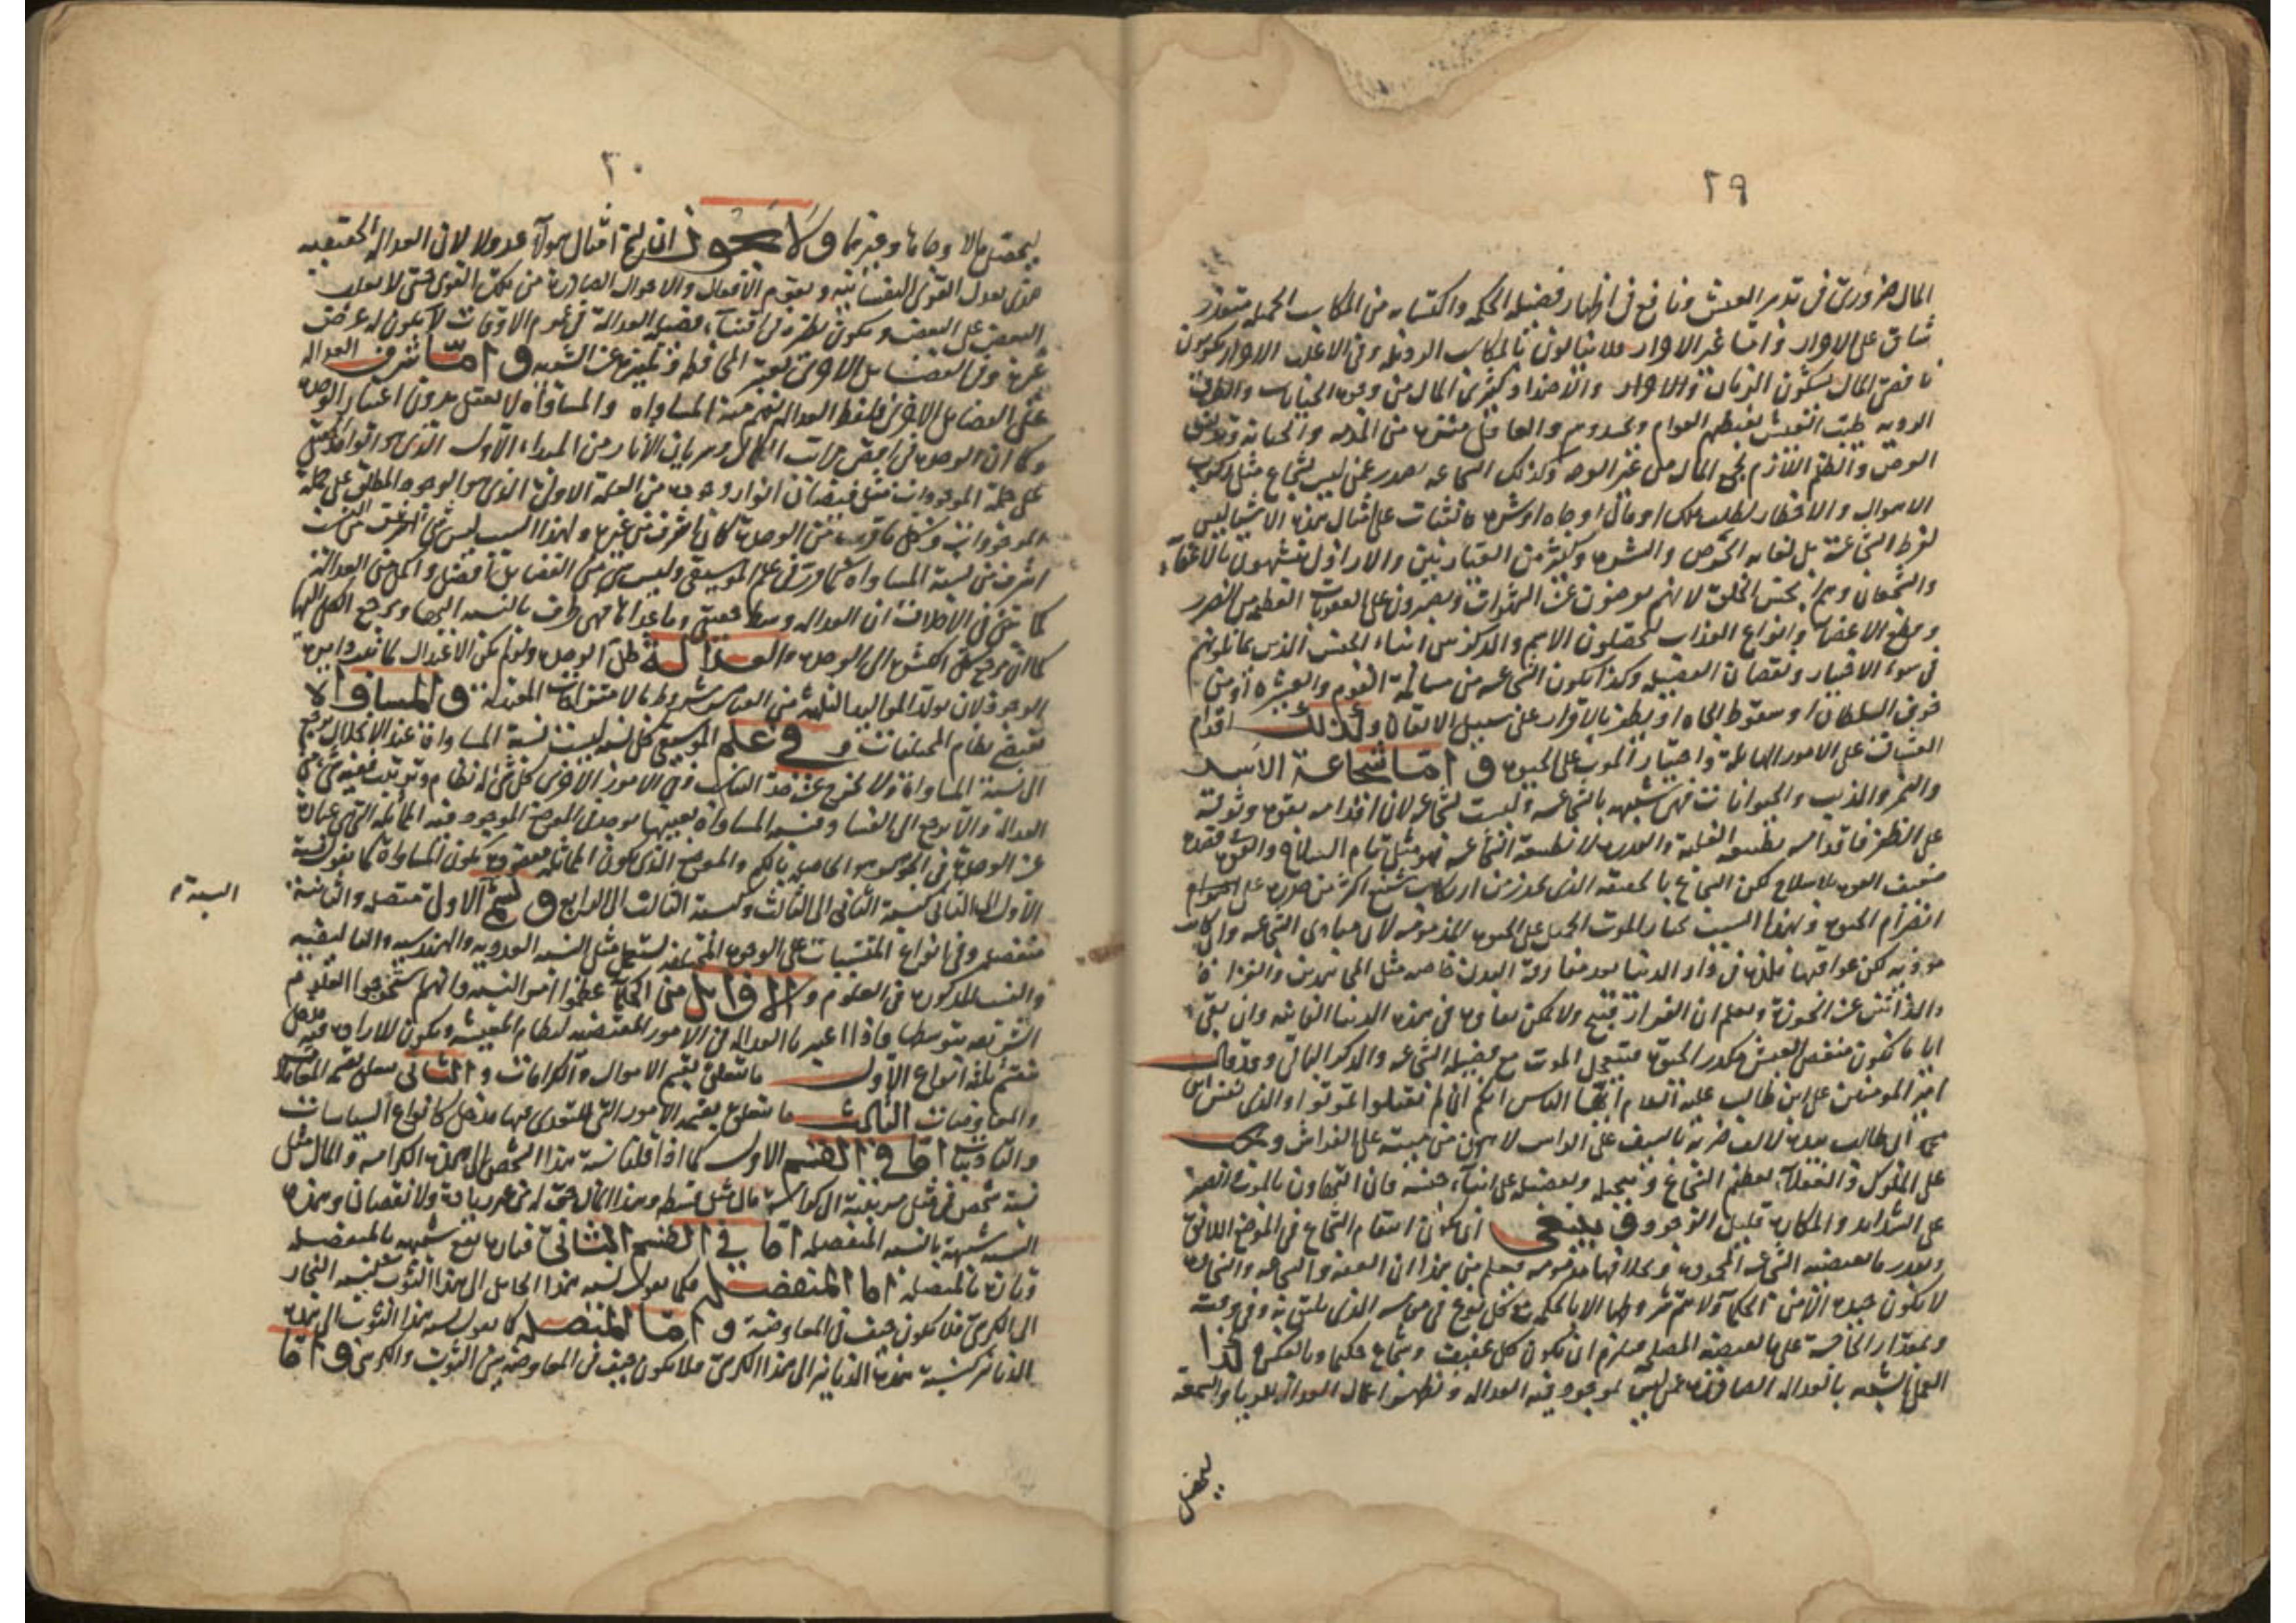 ٢٩
المال ضروري في تدبير العيش ونافع في اظهار فضيلة الحكمة واكتسابه من المكاسب الجميلة متعذر
شاق على الاحرار واما غير الاحرار فلا يبالون بالمكاسب الردية وفي الاغلب الاحرار يكونون
ناقصي المال يشكون الزمان والاحرار والاضداد كثيري المال من وجوه الخيانات والطرق
الردية طيب التعيش يغبطهم العوام ويحسدوهم والعاقل متنزه من المذمة والخيانة
والظلم اللازم لجمع المال من غير الوجه وكذلك الشجاعة يصدر عمن ليس بشجاع مثل ركوب
الاهوال والاخطار لطلب ملك او مال او جاه او شره فالثبات على امثال هذه الاشياء ليس
لفرط الشجاعة بل لغاية الحرص والشره وكثير من العيارين والاراذل متشبهون بالاعفاء
والشجعان وهم ابخس الخلق لانهم يعرضون عن الشهوات ويصبرون على العقوبات العظيمة من الضرب
وقطع الاعضاء وانواع العذاب ليحصلون الاسم والذكر من ابناء الجنس الذين يماثلونهم
في سوء الاختيار ونقصان الفضيلة وكذا يكون الشجاعة من ملامة القوم والعشيرة او من
خوف السلطان او سقوط الجاه او يظفر بالاقران على سبيل الاتفاق وكذلك اقدام
العشاق على الامور الهائلة واختيار الموت على الحيوة و اما شجاعة الاسد
والنمر والذيب والحيوانات فهي شبيهة بالشجاعة وليست شجاعة لان اقدامه بقوة وثوقه
على الظفر فاقدامه بطبيعة الغلبة والقدرة لا بطبيعة الشجاعة فهو مثل تمام السلاح والقوة
ضعيف القوة بلا سلاح لكن الشجاع بالحقيقة الذي يحذر من ارتكاب شنيع اكثر من حذره على
انصرام الحيوة ولهذا السبب يختار الموت الجميل على الحيوة المذمومة لان مبادي الشجاعة وان كانت
موذية لكن عواقبها ملذة في دار الدنيا بعد مفارقة البدن خاصة مثل المجاهدين والغزاة
والذابين عن الحوزة ويعلم ان الفرار قبيح ولا يمكن بقاؤه في هذه الدنيا الفانية وان بقي
اياما يكون منغص العيش مكدر الحيوة فيتعجل الموت مع فضيلة الشجاعة والذكر الباقي وقد قال
امير المومنين علي ابن ابي طالب عليه السلام ايها الناس انكم ان لم تقتلوا تموتوا والذي نفس ابن
ابي طالب بيده لالف ضربة بالسيف على الراس لاهون من ميتة على الفراش ويجب
على الملوك والعقلاء تعظيم الشجاع وتبجيله وتفضيله على ابناء جنسه فان التهاون بالموت والصبر
على الشدائد والمكاره قليل الوجود و ينبغي ان يكون انتقام الشجاع في الموضع اللائق
وبقدر ما تقتضيه الشجاعة المحمودة وبخلافها مذمومة فعلم من هذا ان العفة والشجاعة والسخاوة
لا يكون جيدة الا من الحكماء ولا تتم شروطها الا بالحكمة كل نوع في موضعه الذي يليق به وفي وقته
وبمقدار الحاجة على ما يقتضيه المصلحة فيلزم ان يكون كل عفيف وشجاع حكيما وبالعكس و كذا
العمل الشبيه بالعدالة الصادرة عمن ليس بموجود فيه العدالة ويظهر اعمال العدالة بالريا والسمعة
ليحصل
٣٠
ليحصل مالا وجاها وغيرهما و لا يجوز ان يسمى امثال هولاء عدولا لان العدالة الحقيقية
هي تعديل القوى النفسانية وتقويم الافعال والاحوال الصادرة من تلك القوى حتى لا يغلب
البعض على البعض ويكون نظره في اقتناء فضيلة العدالة في عموم الاوقات لا يكون له غرض
غيره وفي الفضايل الاخرى يعتبر المحافظة وتمييزه عن الشبه و اما شرف العدالة
على الفضايل الاخرى فلفظ العدالة يفهم منه المساواة والمساواة لا يعقل بدون اعتبار الوحدة
وكما ان الوحدة في اقصى مراتب الكمال وسريان الاثار من المبداء الاول الذي هو الواحد الحقيقي
على جملة الموجودات مثل فيضان انوار وجوده من العلة الاولى الذي هو الوجود المطلق على جملة
الموجودات وكل ما قرب من الوحدة كان اشرف من غيره ولهذا السبب ليس شي من النسب
اشرف من نسبة المساواة كما قرر في علم الموسيقى وليس شي من الفضايل افضل واكمل من العدالة
كما تبين في الاخلاق ان العدالة وسط حقيقي وما عداها فهي اطراف بالنسبة اليها ويرجع الكل اليها
كما ان مرجع كل الكثرة الى الوحدة والعدالة ظل الوحدة ولو لم يكن الاعتدال لما تم دايرة
الوجود لان تولد المواليد الثلثة من العناصر مشروط بالامتزاجات المعتدلة و المساواة
يقتضي نظام المختلفات و في علم الموسيقى كل نسبة ليست نسبة المساواة عند الانحلال يرجع
الى نسبة المساواة ولا يخرج عن حد التناسب وفي الامور الاخرى كل شي له نظام
العدالة والا يرجع الى الفساد ونسبة المساواة بعينها يوجد في الموضع الموجود فيه المماثلة التي هي عبارة
عن الوحدة في الجوهر هو الحاصل بالكم والموضع الذي يكون المماثلة مفقودة يكون المساواة كما يقول نسبة
الاول الى الثاني كنسبة الثاني الى الثالث وكنسبة الثالث الى الرابع و تسمى الاولى متصلة والثانية
منفصلة وفي انواع المنتسبات على الوجوه المختلفة يستعمل مثل النسبة العددية والهندسية والتاليفية
والنسب المذكورة في العلوم و الاوايل من الحكماء عظموا امر النسبة وانهم استخرجوا العلوم
الشريفة بتوسطها واذا اعتبرنا العدالة في الامور المقتضية لنظام المعيشة ويكون للارادة فيه مدخل
ينقسم ثلثة انواع الاول ما يتعلق بقسم الاموال والكرامات و الثاني يتعلق بقسم المعاملات
والمعاوضات الثالث ما يتعلق بقسمة الامور التي للتعدي فيها مدخل كانواع السياسات
والتاديبات اما في القسم الاول كما اذا قلنا نسبة هذا الشخص الى هذه الكرامة والمال مثل
نسبة شخص في مثل مرتبته الى كرامة مال مثل قسطه وهذا المال حقه له من غير زيادة ولا نقصان وهذه
النسبة شبيهة بالنسبة المنفصلة اما في القسم الثاني فتارة يقع شبيهة بالمنفصلة
وتارة بالمتصلة اما المنفصلة فكما يقول نسبة هذا الحامل الى هذا الثوب كنسبة النجار
الى الكرسي فلا يكون حيف في المعاوضة و اما المتصلة كما يقول نسبة هذا الثوب الى هذه
الدنانير كنسبة هذه الدنانير الى هذا الكرسي فلا يكون حيف في المعاوضة بين الثوب والكرسي و اما